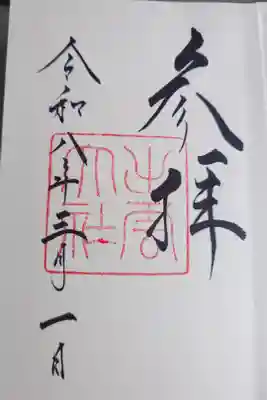 参拝
出雲大社
令和八年三月一日